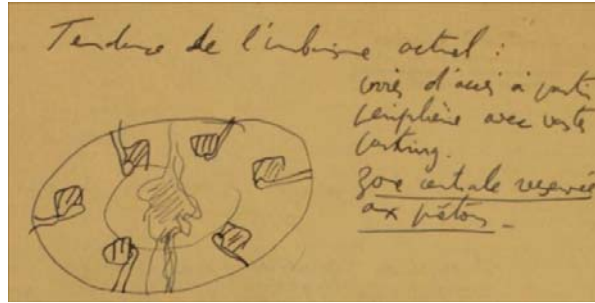 Tendance de l'urbanisme actuel :
voies d'accès à partir
périphérie avec vaste
parking.
zone centrale réservée
aux piétons_